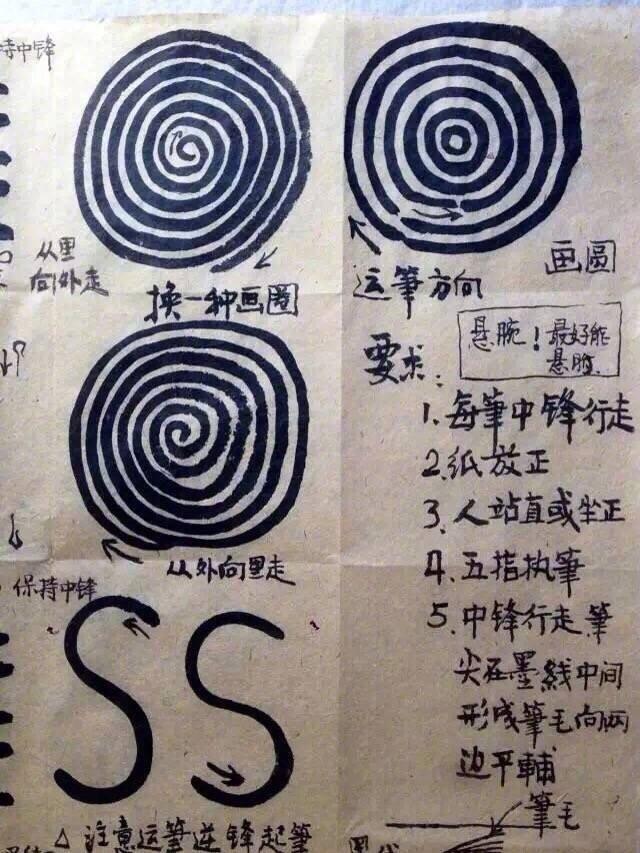 持中锋
从里
向外走
换一种画圈
运筆方向
画圓
悬腕！最好能
悬肘
要求：
1. 每筆中锋行走
2. 纸放正
3. 人站直或坐正
4. 五指执筆
5. 中锋行走筆
尖在墨线中间
形成筆毛向两
边平輔
筆毛
从外向里走
保持中锋
SS
△注意运筆逆锋起筆